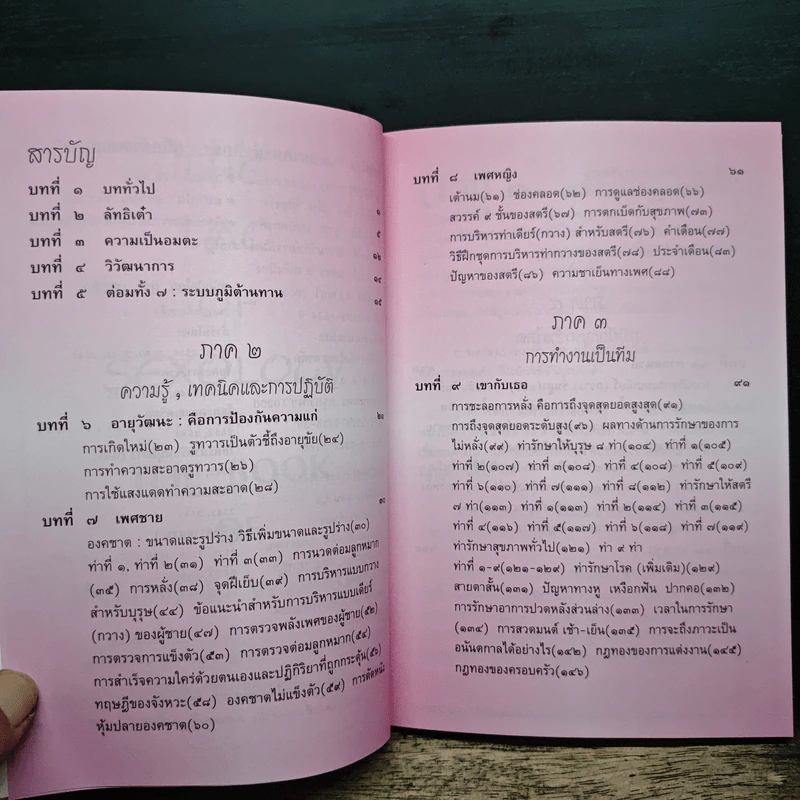 สารบัญ
บทที่ ๑ บททั่วไป ๑
บทที่ ๒ ลัทธิเต๋า ๕
บทที่ ๓ ความเป็นอมตะ ๑๒
บทที่ ๔ วิวัฒนาการ ๑๔
บทที่ ๕ ต่อมทั้ง ๗ : ระบบภูมิต้านทาน ๑๕
ภาค ๒
ความรู้, เทคนิคและการปฏิบัติ
บทที่ ๖ อายุวัฒนะ : คือการป้องกันความแก่ ๒๑
การเกิดใหม่(๒๓) รูทวารเป็นตัวชี้ถึงอายุขัย(๒๔)
การทำความสะอาดรูทวาร(๒๖)
การใช้แสงแดดทำความสะอาด(๒๘)
บทที่ ๗ เพศชาย ๓๐
องคชาต : ขนาดและรูปร่าง วิธีเพิ่มขนาดและรูปร่าง(๓๐)
ท่าที่ ๑, ท่าที่ ๒(๓๑) ท่าที่ ๓(๓๓) การนวดต่อมลูกหมาก
(๓๕) การหลั่ง(๓๘) จุดฝีเย็บ(๓๙) การบริหารแบบกวาง
สำหรับบุรุษ(๔๔) ข้อแนะนำสำหรับการบริหารแบบเดียร์
(กวาง) ของผู้ชาย(๔๗) การตรวจพลังเพศของผู้ชาย(๕๒)
การตรวจการแข็งตัว(๕๓) การตรวจต่อมลูกหมาก(๕๔)
การสำเร็จความใคร่ด้วยตนเองและปฏิกิริยาที่ถูกกระตุ้น(๕๖)
ทฤษฎีของจังหวะ(๕๘) องคชาตไม่แข็งตัว(๕๙) การตัดหนัง
หุ้มปลายองคชาต(๖๐)
บทที่ ๘ เพศหญิง ๖๑
เต้านม(๖๑) ช่องคลอด(๖๒) การดูแลช่องคลอด(๖๖)
สวรรค์ ๙ ชั้นของสตรี(๖๗) การตกเบ็ดกับสุขภาพ(๗๓)
การบริหารท่าเดียร์(กวาง) สำหรับสตรี(๗๖) ค่าเดือน(๗๗)
วิธีฝึกชุดการบริหารท่ากวางของสตรี(๗๘) ประจำเดือน(๘๓)
ปัญหาของสตรี(๘๖) ความชาเย็นทางเพศ(๘๘)
ภาค ๓
การทำงานเป็นทีม
บทที่ ๙ เขากับเธอ ๙๑
การชะลอการหลั่ง คือการถึงจุดสุดยอดสูงสุด(๙๑)
การถึงจุดสุดยอดระดับสูง(๙๖) ผลทางด้านการรักษาของการ
ไม่หลั่ง(๙๙) ท่ารักษาให้บุรุษ ๘ ท่า(๑๐๔) ท่าที่ ๑(๑๐๕)
ท่าที่ ๒(๑๐๗) ท่าที่ ๓(๑๐๘) ท่าที่ ๔(๑๐๘) ท่าที่ ๕(๑๐๙)
ท่าที่ ๖(๑๑๐) ท่าที่ ๗(๑๑๑) ท่าที่ ๘(๑๑๒) ท่ารักษาให้สตรี
๗ ท่า(๑๑๓) ท่าที่ ๑(๑๑๓) ท่าที่ ๒(๑๑๔) ท่าที่ ๓(๑๑๕)
ท่าที่ ๔(๑๑๖) ท่าที่ ๕(๑๑๗) ท่าที่ ๖(๑๑๘) ท่าที่ ๗(๑๑๙)
ท่ารักษาสุขภาพทั่วไป(๑๒๑) ท่า ๙ ท่า
ท่าที่ ๑-๙(๑๒๑-๑๒๙) ท่ารักษาโรค (เพิ่มเติม)(๑๒๙)
สายตาสั้น(๑๓๑) ปัญหาทางหู เหงือกฟัน ปากคอ(๑๓๒)
การรักษาอาการปวดหลังส่วนล่าง(๑๓๓) เวลาในการรักษา
(๑๓๔) การสวดมนต์ เช้า-เย็น(๑๓๕) การจะถึงภาวะเป็น
อนันตกาลได้อย่างไร(๑๔๒) กฎทองของการแต่งงาน(๑๔๕)
กฎทองของครอบครัว(๑๔๖)